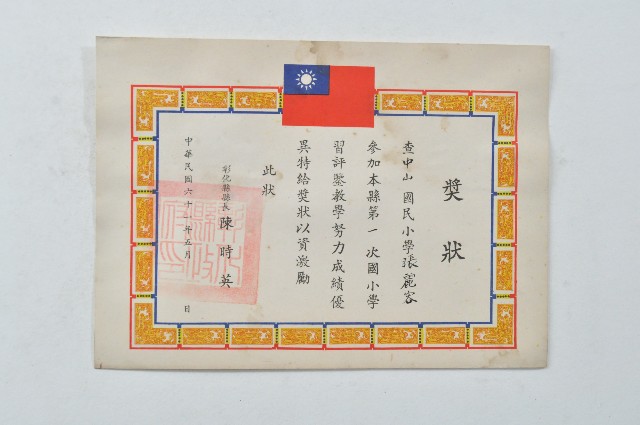 獎狀
查中山國民小學張麗容
參加本縣第一次國小學
習評鑒教學努力成績優
異特給獎狀以資激勵
此狀
彰化縣縣長 陳時英
中華民國六十一年五月 日